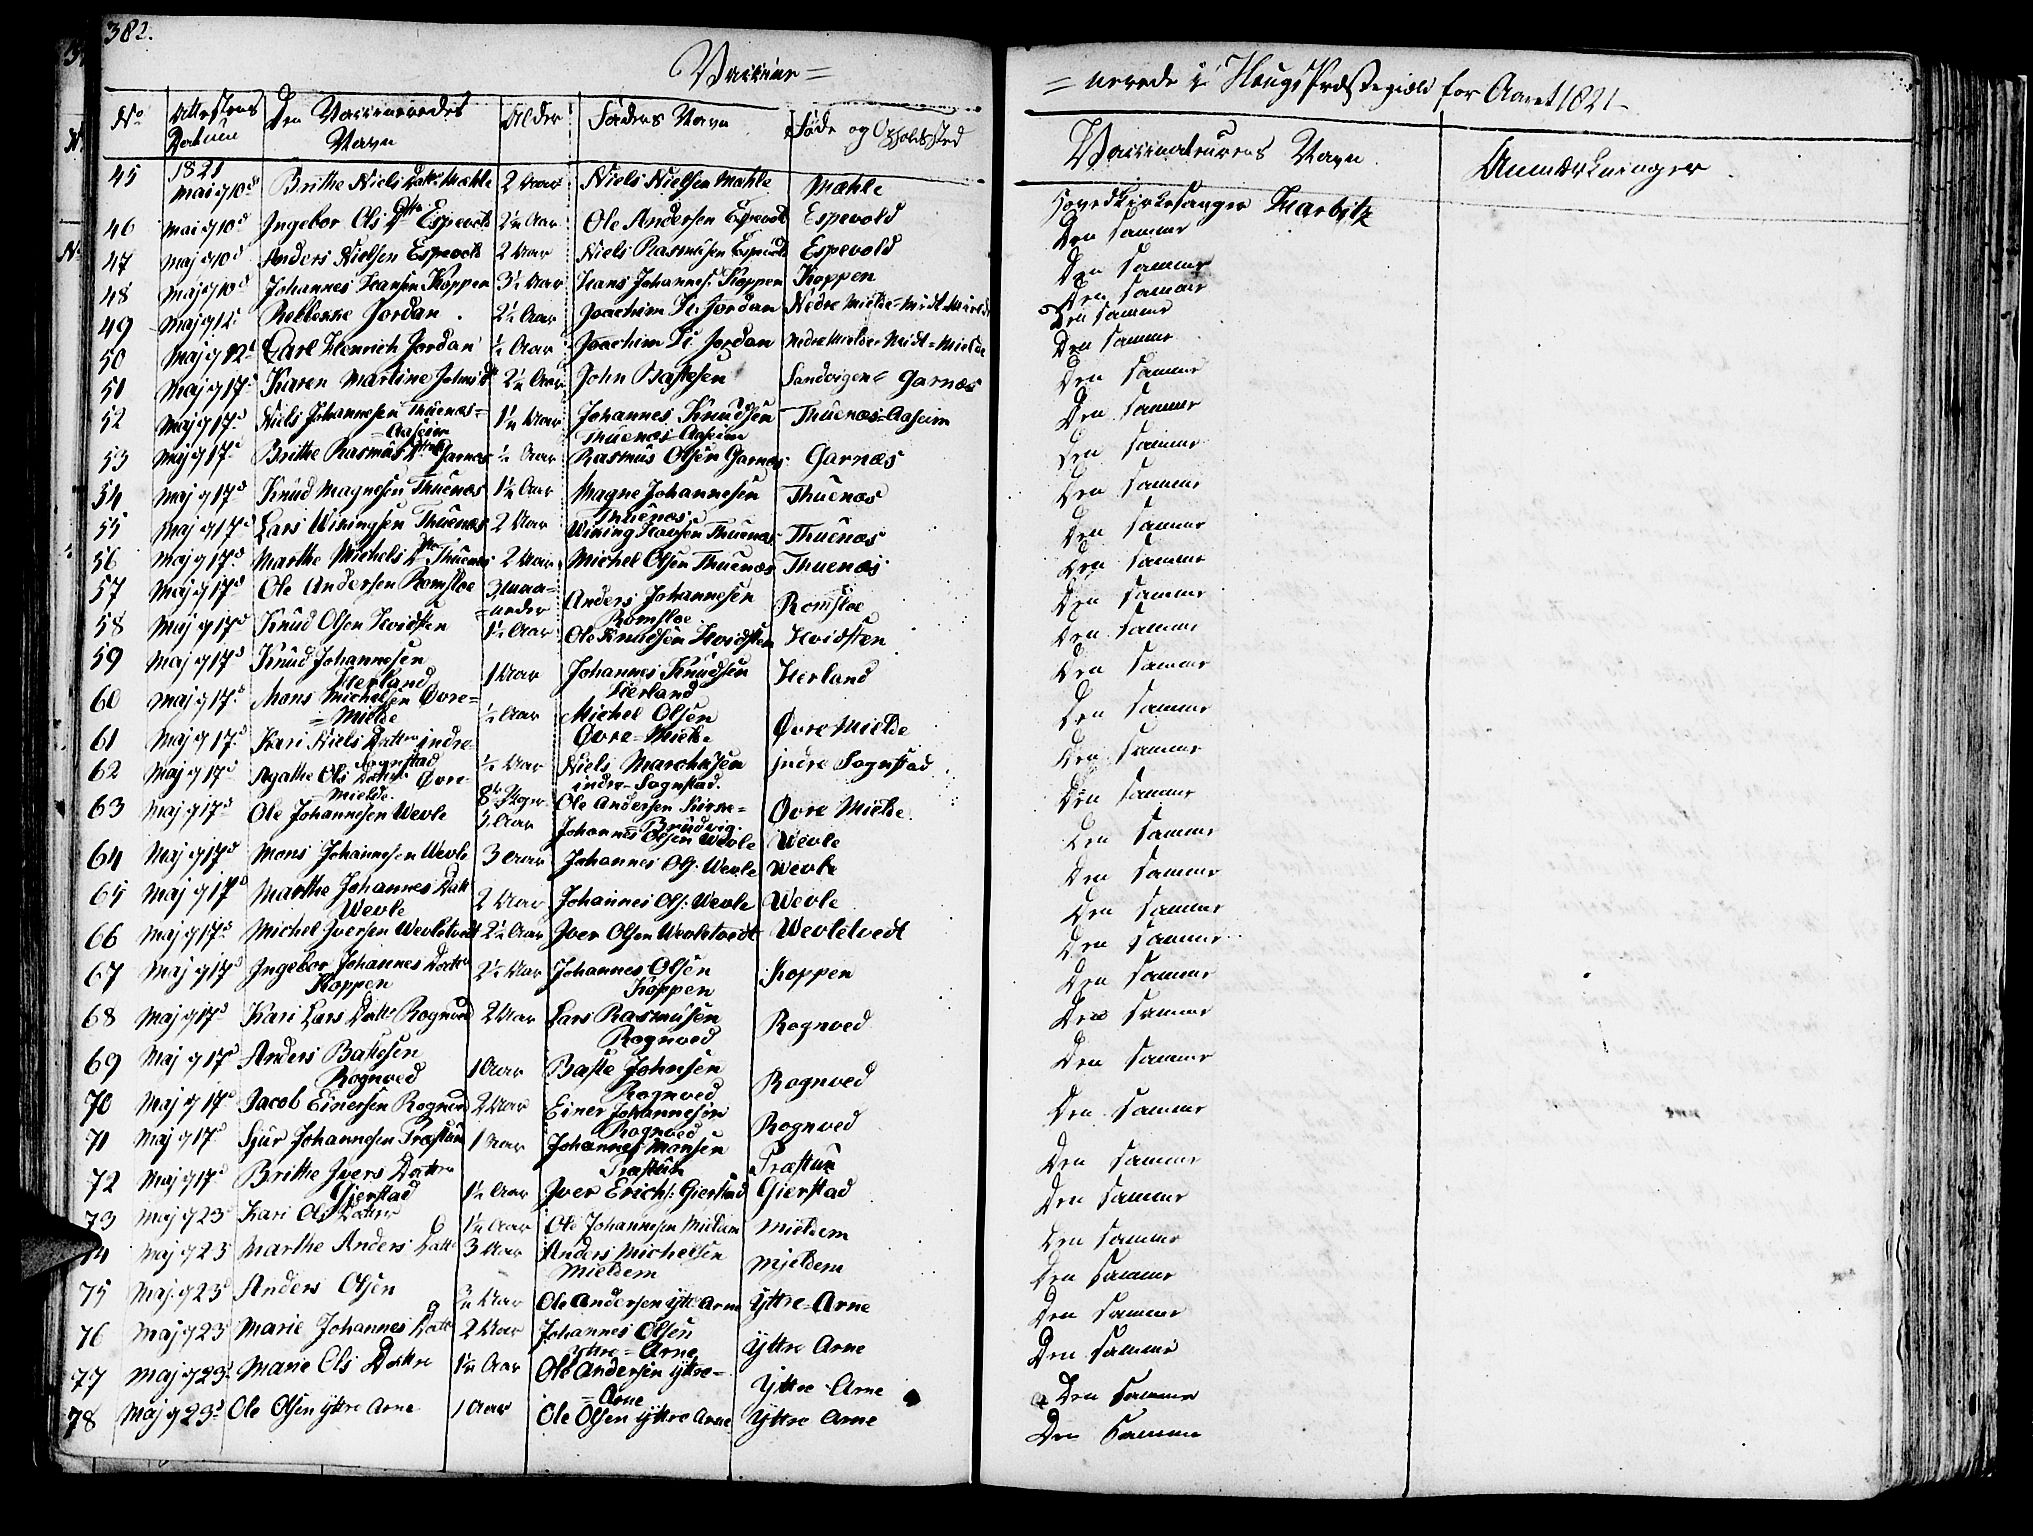 382.
Vaccine=
=nerede i Hougs Præstegield for Aaret 1821
No Attestens Datum Den Vaccineredes Navn Alder Faders Navn Føde og Opholdssted Vaccinateurens Navn Anmærkninger
45 1821 Mai 10de Brithe Niels Datt: Mæhle 2 Aar Niels Nielsen Mæhle Mæhle Hovedkirkesanger
46 Mai 10d Ingebor Ols Dttr Espevold 2½ Aar Ole Andersen Espevold Espevold Den samme
47 Maj 10d Anders Nielsen Espevold 2 Aar Niels Rasmusen Espevold Espevold Den samme
48 Maj 10d Johannes Hansen Koppen 3½ Aar Hans Johannes: Koppen Koppen Den samme
49 Maj 12 Rebekke Jordan 2½ Aar Joachim Jordan Nedre Mielde=Midt Mielde Den samme
50 Maj 12d Carl Henrich Jordan ½ Aar Joachim Jordan Nedre Mielde Midt=Mielde Den samme
51 Maj 17d Karen Martine Johns D 2½ Aar John Bastesen Sandvigen Garnæs Den samme
52 Maj 17d Niels Johannesen Thuenæs=Aaseim 1½ Aar Johannes Knudsen Thuenæs Aaseim Thuenæs=Aaseim Den samme
53 Maj 17d Brithe Rasmus Datt Garnæs ½ Aar Rasmus Olsen Garnæs Garnæs Den samme
54 Maj 17d Knud Magnesen Thuenæs 1½ Aar Magne Johannesen Thuenæs Thuenæs Den samme
55 Maj 17d Lars Wikingsen Thuenæs 2 Aar Wiking Thuenæs Thuenæs Den samme
56 Maj 17d Marthe Michels Dtr Thuenæs 2 Aar Michel Olsen Thuenæs Thuenæs Den samme
57 Maj 17d Ole Andersen Romsloe 3 Maaneder Anders Johannesen Romsloe Romsloe Den samme
58 Maj 17d Knud Olsen Hvidsten 1½ Aar Ole Knudsen Hvidsten Hvidsten Den samme
59 Maj 17d Knud Johannesen Herland 1 Aar Johannes Knudsen Herland Herland Den samme
60 Maj 17d Mons Michelsen Øvre=Mielde ½ Aar Michel Olsen Øvre=Mielde Øvre Mielde Den samme
61 Maj 17d Kari Niels Datter indre Sognstad ½ Aar Niels Marchusen indre Sognstad. indre Sognstad Den samme
62 Maj 17d Agathe Ols Datter Øvre Mielde. 8te Uger Ole Andersen Øvre Mielde Den samme
63 Maj 17d Ole Johannesen Wevle Aar Johannes Olsen Wevle Wevle Den samme
64 Maj 17d Mons Johannesen Wevle 3 Aar Johannes Ols: Wevle Wevle Den samme
65 Maj 17d Marthe Johannes Datt Wevle 2 Aar Johannes Ols: Wevle Wevle Den samme
66 Maj 17d Michel Iversen Wevletvedt 2½ Aar Iver Olsen Wevletvedt Wevletvedt Den samme
67 Maj 17d Ingebor Johannes Datter Koppen 2½ Aar Johannes Olsen Koppen Koppen Den samme
68 Maj 17d Kari Lars Datt Rognved 2 Aar Lars Rasmusen Rognved Rognved Den samme
69 Maj 17d Anders Bastesen Rognved 1 Aar Baste Johnsen Rognved Rognved Den samme
70 Maj 17d Jacob Einersen Rognved 2 Aar Einer Johannesen Rognved Rognved Den samme
71 Maj 17d Sjur Johannesen Træstun 1 Aar Johannes Monsen Træstun Træstun Den samme
72 Maj 17d Brithe Ivers Datter Gierstad 1½ Aar Iver Erichs: Gierstad Gierstad Den samme
73 Maj 23 Kari Ols Datter 1½ Aar Ole Johannesen Mieldem Mieldem Den samme
74 Maj 23 Marthe Anders Datt 3 Aar Anders Michelsen Mieldem Mjeldem Den samme
75 Maj 23 Anders Olsen Aar Ole Andersen Yttre Arne Yttre=Arne Den samme
76 Maj 23 Marie Johannes Datt 2 Aar Johannes Olsen Yttre=Arne Yttre Arne Den samme
77 Maj 23 Marie Ols Dattre 1½ Aar Ole Andersen Yttre=Arne Yttre Arne Den samme
78 Maj 23d Ole Olsen Yttre Arne 1 Aar Ole Olsen Yttre Arne Yttre Arne Den samme